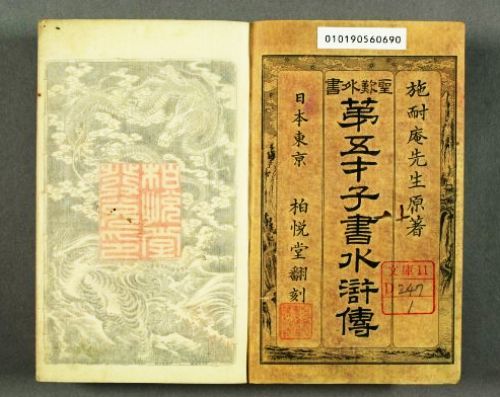 010190560690
聖歎外書
施耐庵先生原著
上
第五才子書水滸傳
日本東京 柏悦堂翻刻
文庫11
D 247
1
柏悦堂